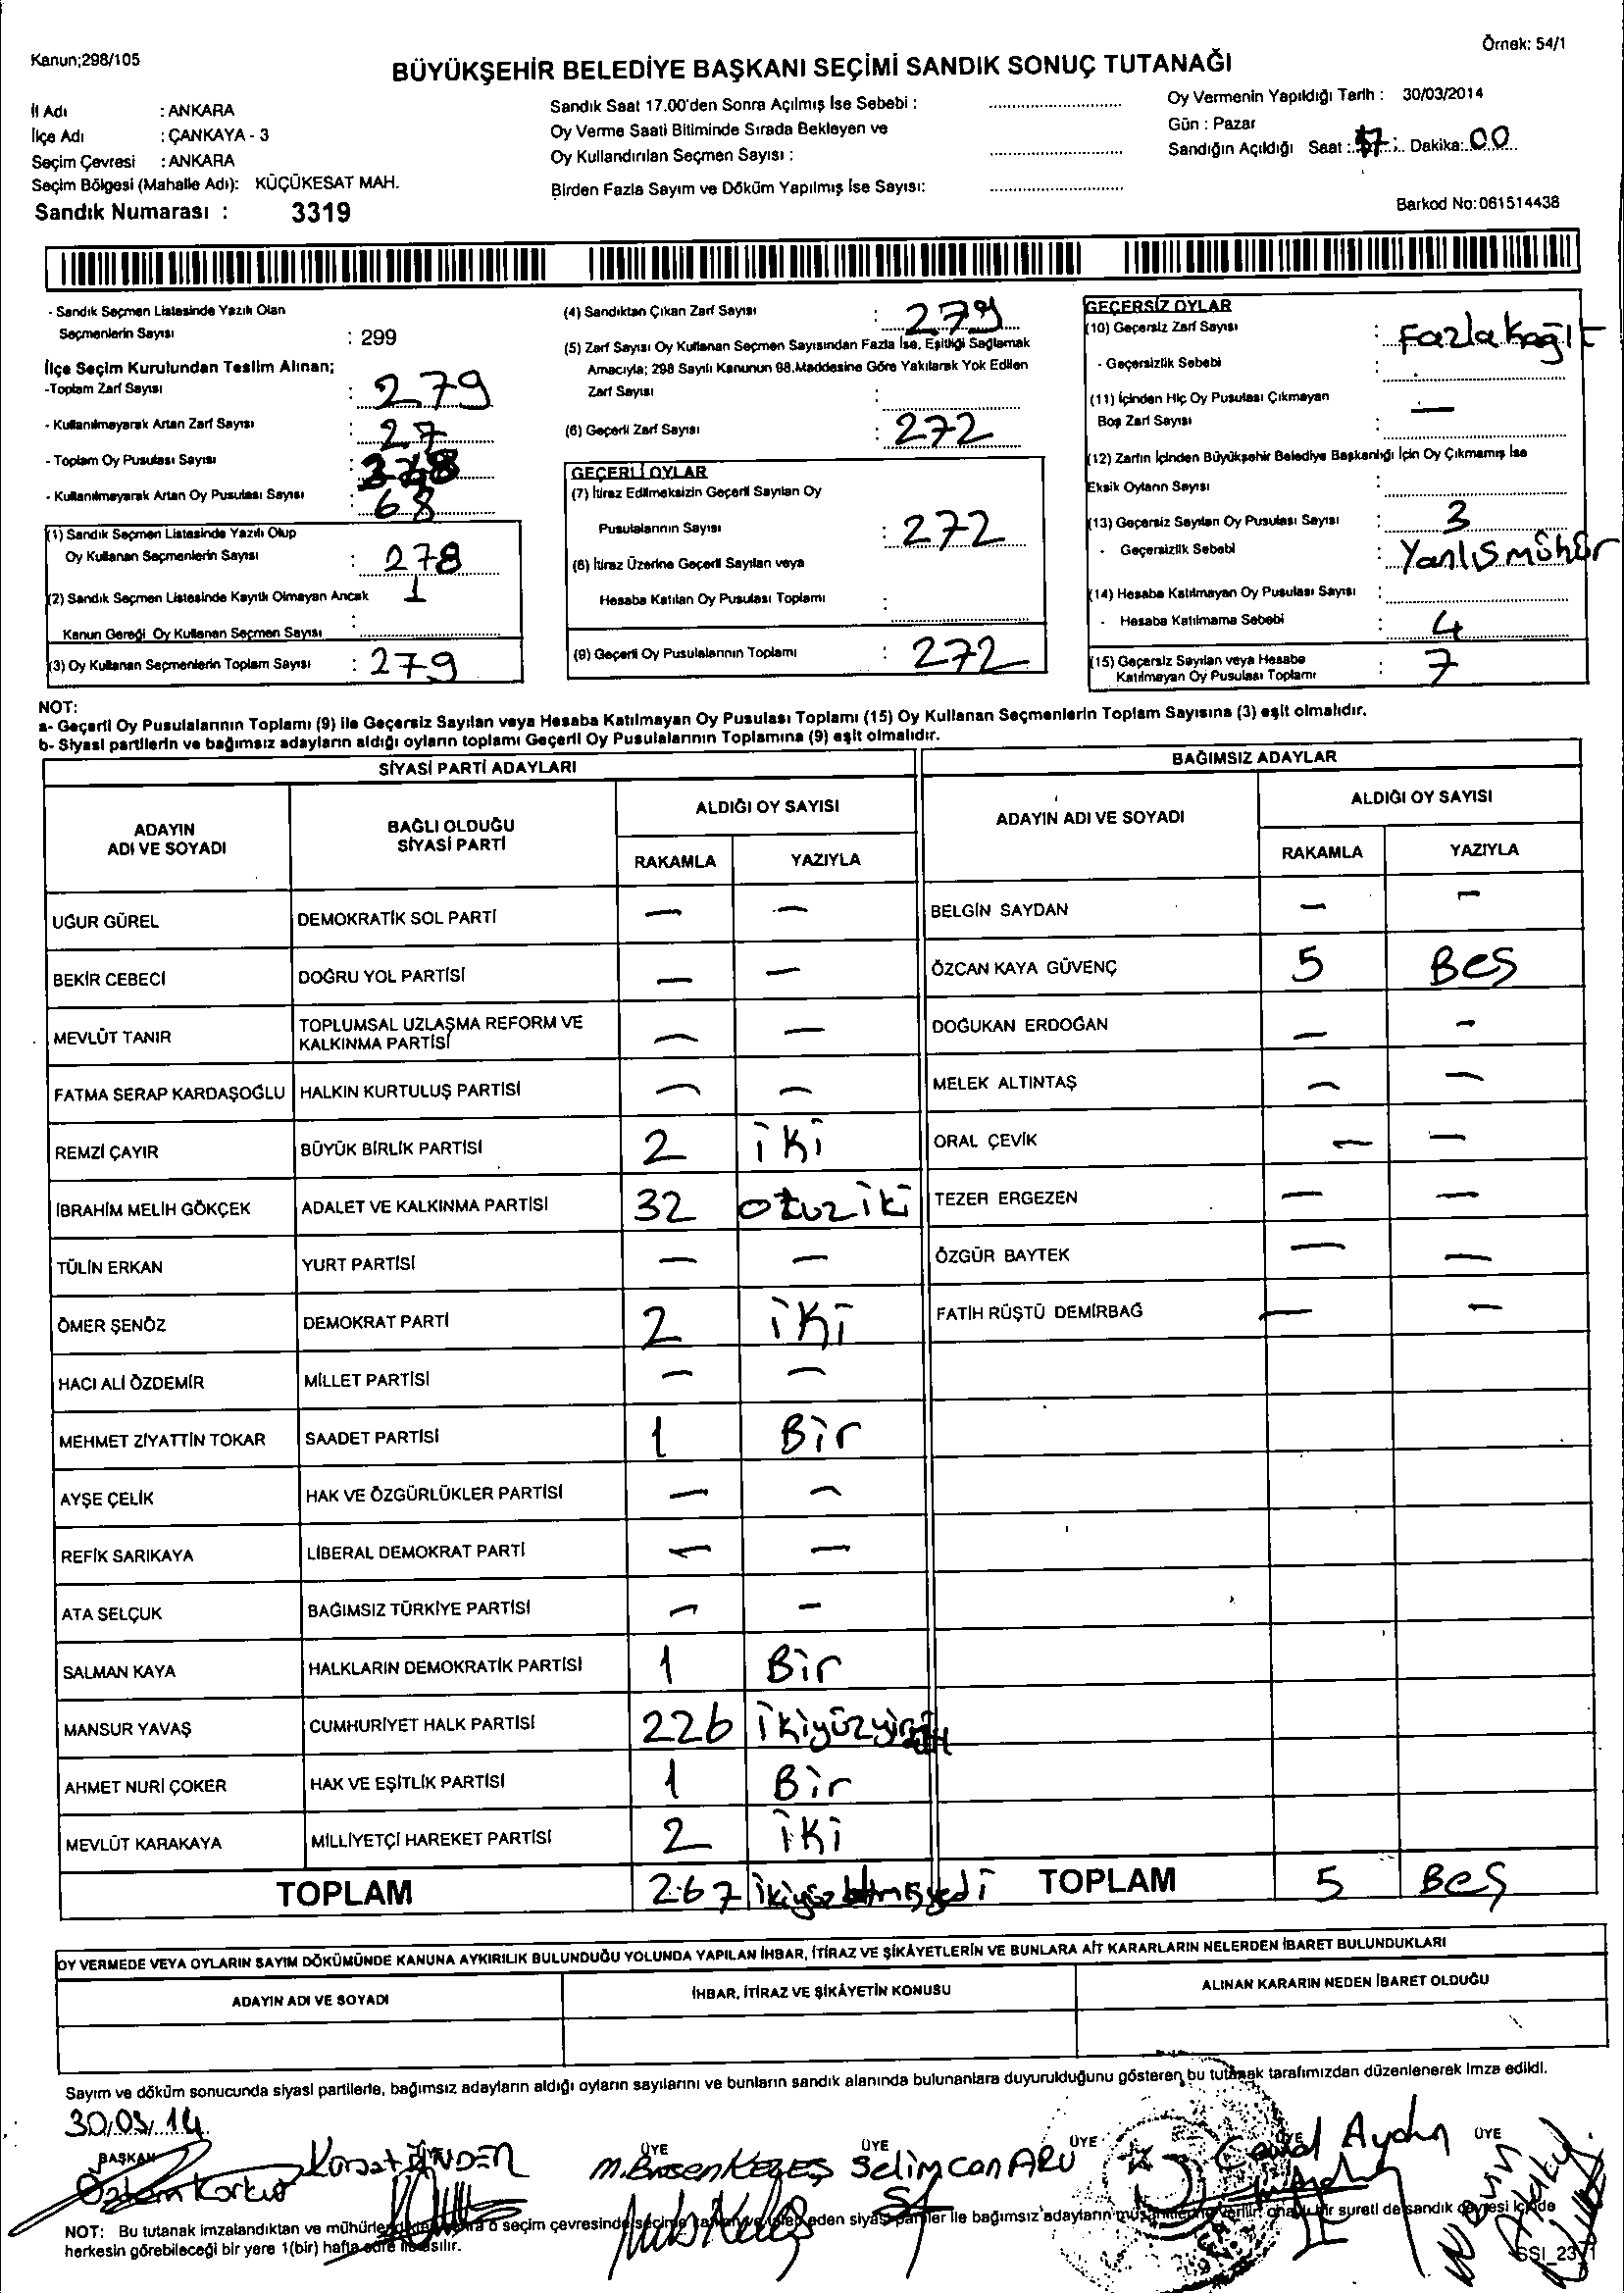 Kanun;298/105
Örnek: 54/1
BÜYÜKŞEHİR BELEDİYE BAŞKANI SEÇİMİ SANDIK SONUÇ TUTANAĞI
İl Adı : ANKARA
İlçe Adı : ÇANKAYA - 3
Seçim Çevresi : ANKARA
Seçim Bölgesi (Mahalle Adı): KÜÇÜKESAT MAH.
Sandık Numarası : 3319
Sandık Saat 17.00'den Sonra Açılmış İse Sebebi :
Oy Verme Saati Bitiminde Sırada Bekleyen ve
Oy Kullandırılan Seçmen Sayısı :
Birden Fazla Sayım ve Döküm Yapılmış İse Sayısı:
Oy Vermenin Yapıldığı Tarih : 30/03/2014
Gün : Pazar
Sandığın Açıldığı Saat : 17 Dakika: 00
Barkod No:061514438
- Sandık Seçmen Listesinde Yazılı Olan
Seçmenlerin Sayısı : 299
İlçe Seçim Kurulundan Teslim Alınan;
-Toplam Zarf Sayısı : 279
- Kullanılmayarak Artan Zarf Sayısı : 27
- Toplam Oy Pusulası Sayısı :
- Kullanılmayarak Artan Oy Pusulası Sayısı : 68
(1) Sandık Seçmen Listesinde Yazılı Olup
Oy Kullanan Seçmenlerin Sayısı : 278
(2) Sandık Seçmen Listesinde Kayıtlı Olmayan Ancak 1
Kanun Gereği Oy Kullanan Seçmen Sayısı :
(3) Oy Kullanan Seçmenlerin Toplam Sayısı : 279
(4) Sandıktan Çıkan Zarf Sayısı : 279
(5) Zarf Sayısı Oy Kullanan Seçmen Sayısından Fazla İse, Eşitliği Sağlamak
Amacıyla; 298 Sayılı Kanunun 98.Maddesine Göre Yakılarak Yok Edilen
Zarf Sayısı :
(6) Geçerli Zarf Sayısı : 272
GEÇERLİ OYLAR
(7) İtiraz Edilmeksizin Geçerli Sayılan Oy
Pusulalarının Sayısı : 272
(8) İtiraz Üzerine Geçerli Sayılan veya
Hesaba Katılan Oy Pusulası Toplamı :
(9) Geçerli Oy Pusulalarının Toplamı : 272
GEÇERSİZ OYLAR
(10) Geçersiz Zarf Sayısı : Fazla Kağıt
- Geçersizlik Sebebi :
(11) İçinden Hiç Oy Pusulası Çıkmayan
Boş Zarf Sayısı : —
(12) Zarfın İçinden Büyükşehir Belediye Başkanlığı İçin Oy Çıkmamış İse
Eksik Oyların Sayısı :
(13) Geçersiz Sayılan Oy Pusulası Sayısı : 3
- Geçersizlik Sebebi : Yanlış mühür
(14) Hesaba Katılmayan Oy Pusulası Sayısı :
- Hesaba Katılmama Sebebi : 4
(15) Geçersiz Sayılan veya Hesaba
Katılmayan Oy Pusulası Toplamı : 7
NOT:
a- Geçerli Oy Pusulalarının Toplamı (9) ile Geçersiz Sayılan veya Hesaba Katılmayan Oy Pusulası Toplamı (15) Oy Kullanan Seçmenlerin Toplam Sayısına (3) eşit olmalıdır.
b- Siyasi partilerin ve bağımsız adayların aldığı oyların toplamı Geçerli Oy Pusulalarının Toplamına (9) eşit olmalıdır.
SİYASİ PARTİ ADAYLARI
ADAYIN ADI VE SOYADI
BAĞLI OLDUĞU SİYASİ PARTİ
ALDIĞI OY SAYISI
RAKAMLA YAZIYLA
UĞUR GÜREL DEMOKRATİK SOL PARTİ — —
BEKİR CEBECİ DOĞRU YOL PARTİSİ — —
MEVLÜT TANIR TOPLUMSAL UZLAŞMA REFORM VE KALKINMA PARTİSİ — —
FATMA SERAP KARDAŞOĞLU HALKIN KURTULUŞ PARTİSİ — —
REMZİ ÇAYIR BÜYÜK BİRLİK PARTİSİ 2 iki
İBRAHİM MELİH GÖKÇEK ADALET VE KALKINMA PARTİSİ 32 otuz iki
TÜLİN ERKAN YURT PARTİSİ — —
ÖMER ŞENÖZ DEMOKRAT PARTİ 2 iki
HACI ALİ ÖZDEMİR MİLLET PARTİSİ — —
MEHMET ZİYATTİN TOKAR SAADET PARTİSİ 1 Bir
AYŞE ÇELİK HAK VE ÖZGÜRLÜKLER PARTİSİ — —
REFİK SARIKAYA LİBERAL DEMOKRAT PARTİ — —
ATA SELÇUK BAĞIMSIZ TÜRKİYE PARTİSİ — —
SALMAN KAYA HALKLARIN DEMOKRATİK PARTİSİ 1 Bir
MANSUR YAVAŞ CUMHURİYET HALK PARTİSİ 226 ikiyüzyirmialtı
AHMET NURİ ÇOKER HAK VE EŞİTLİK PARTİSİ 1 Bir
MEVLÜT KARAKAYA MİLLİYETÇİ HAREKET PARTİSİ 2 iki
TOPLAM 267 ikiyüz altmışyedi
BAĞIMSIZ ADAYLAR
ADAYIN ADI VE SOYADI
ALDIĞI OY SAYISI
RAKAMLA YAZIYLA
BELGİN SAYDAN — —
ÖZCAN KAYA GÜVENÇ 5 Beş
DOĞUKAN ERDOĞAN — —
MELEK ALTINTAŞ — —
ORAL ÇEVİK — —
TEZER ERGEZEN — —
ÖZGÜR BAYTEK — —
FATİH RÜŞTÜ DEMİRBAĞ — —
TOPLAM 5 Beş
OY VERMEDE VEYA OYLARIN SAYIM DÖKÜMÜNDE KANUNA AYKIRILIK BULUNDUĞU YOLUNDA YAPILAN İHBAR, İTİRAZ VE ŞİKÂYETLERİN VE BUNLARA AİT KARARLARIN NELERDEN İBARET BULUNDUKLARI
ADAYIN ADI VE SOYADI
İHBAR, İTİRAZ VE ŞİKÂYETİN KONUSU
ALINAN KARARIN NEDEN İBARET OLDUĞU
Sayım ve döküm sonucunda siyasi partilerle, bağımsız adayların aldığı oyların sayılarını ve bunların sandık alanında bulunanlara duyurulduğunu gösteren bu tutanak tarafımızdan düzenlenerek imza edildi.
30.03.14
BAŞKAN ÜYE ÜYE ÜYE ÜYE ÜYE
Selim can ARU
Aydın
NOT: Bu tutanak imzalandıktan ve mühürlendikten sonra o seçim çevresinde seçime eden siyasi partiler ile bağımsız adayların bir sureti de sandık çevresi içinde
herkesin görebileceği bir yere 1(bir) hafta süre ile asılır.